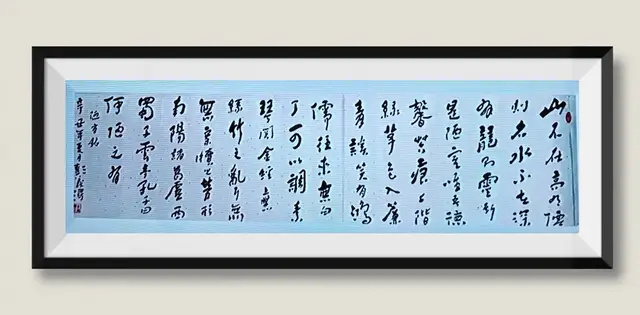 山不在高有僊
则名水不在深
有龍则靈斯
是陋室唯吾德
馨苔痕上階
緑草色入簾
青談笑有鴻
儒往来無白
丁可以調素
琴閲金經無
絲竹之亂耳無
案牘之勞形
南陽諸葛廬西
蜀子雲亭孔子曰
何陋之有
辛丑年夏月